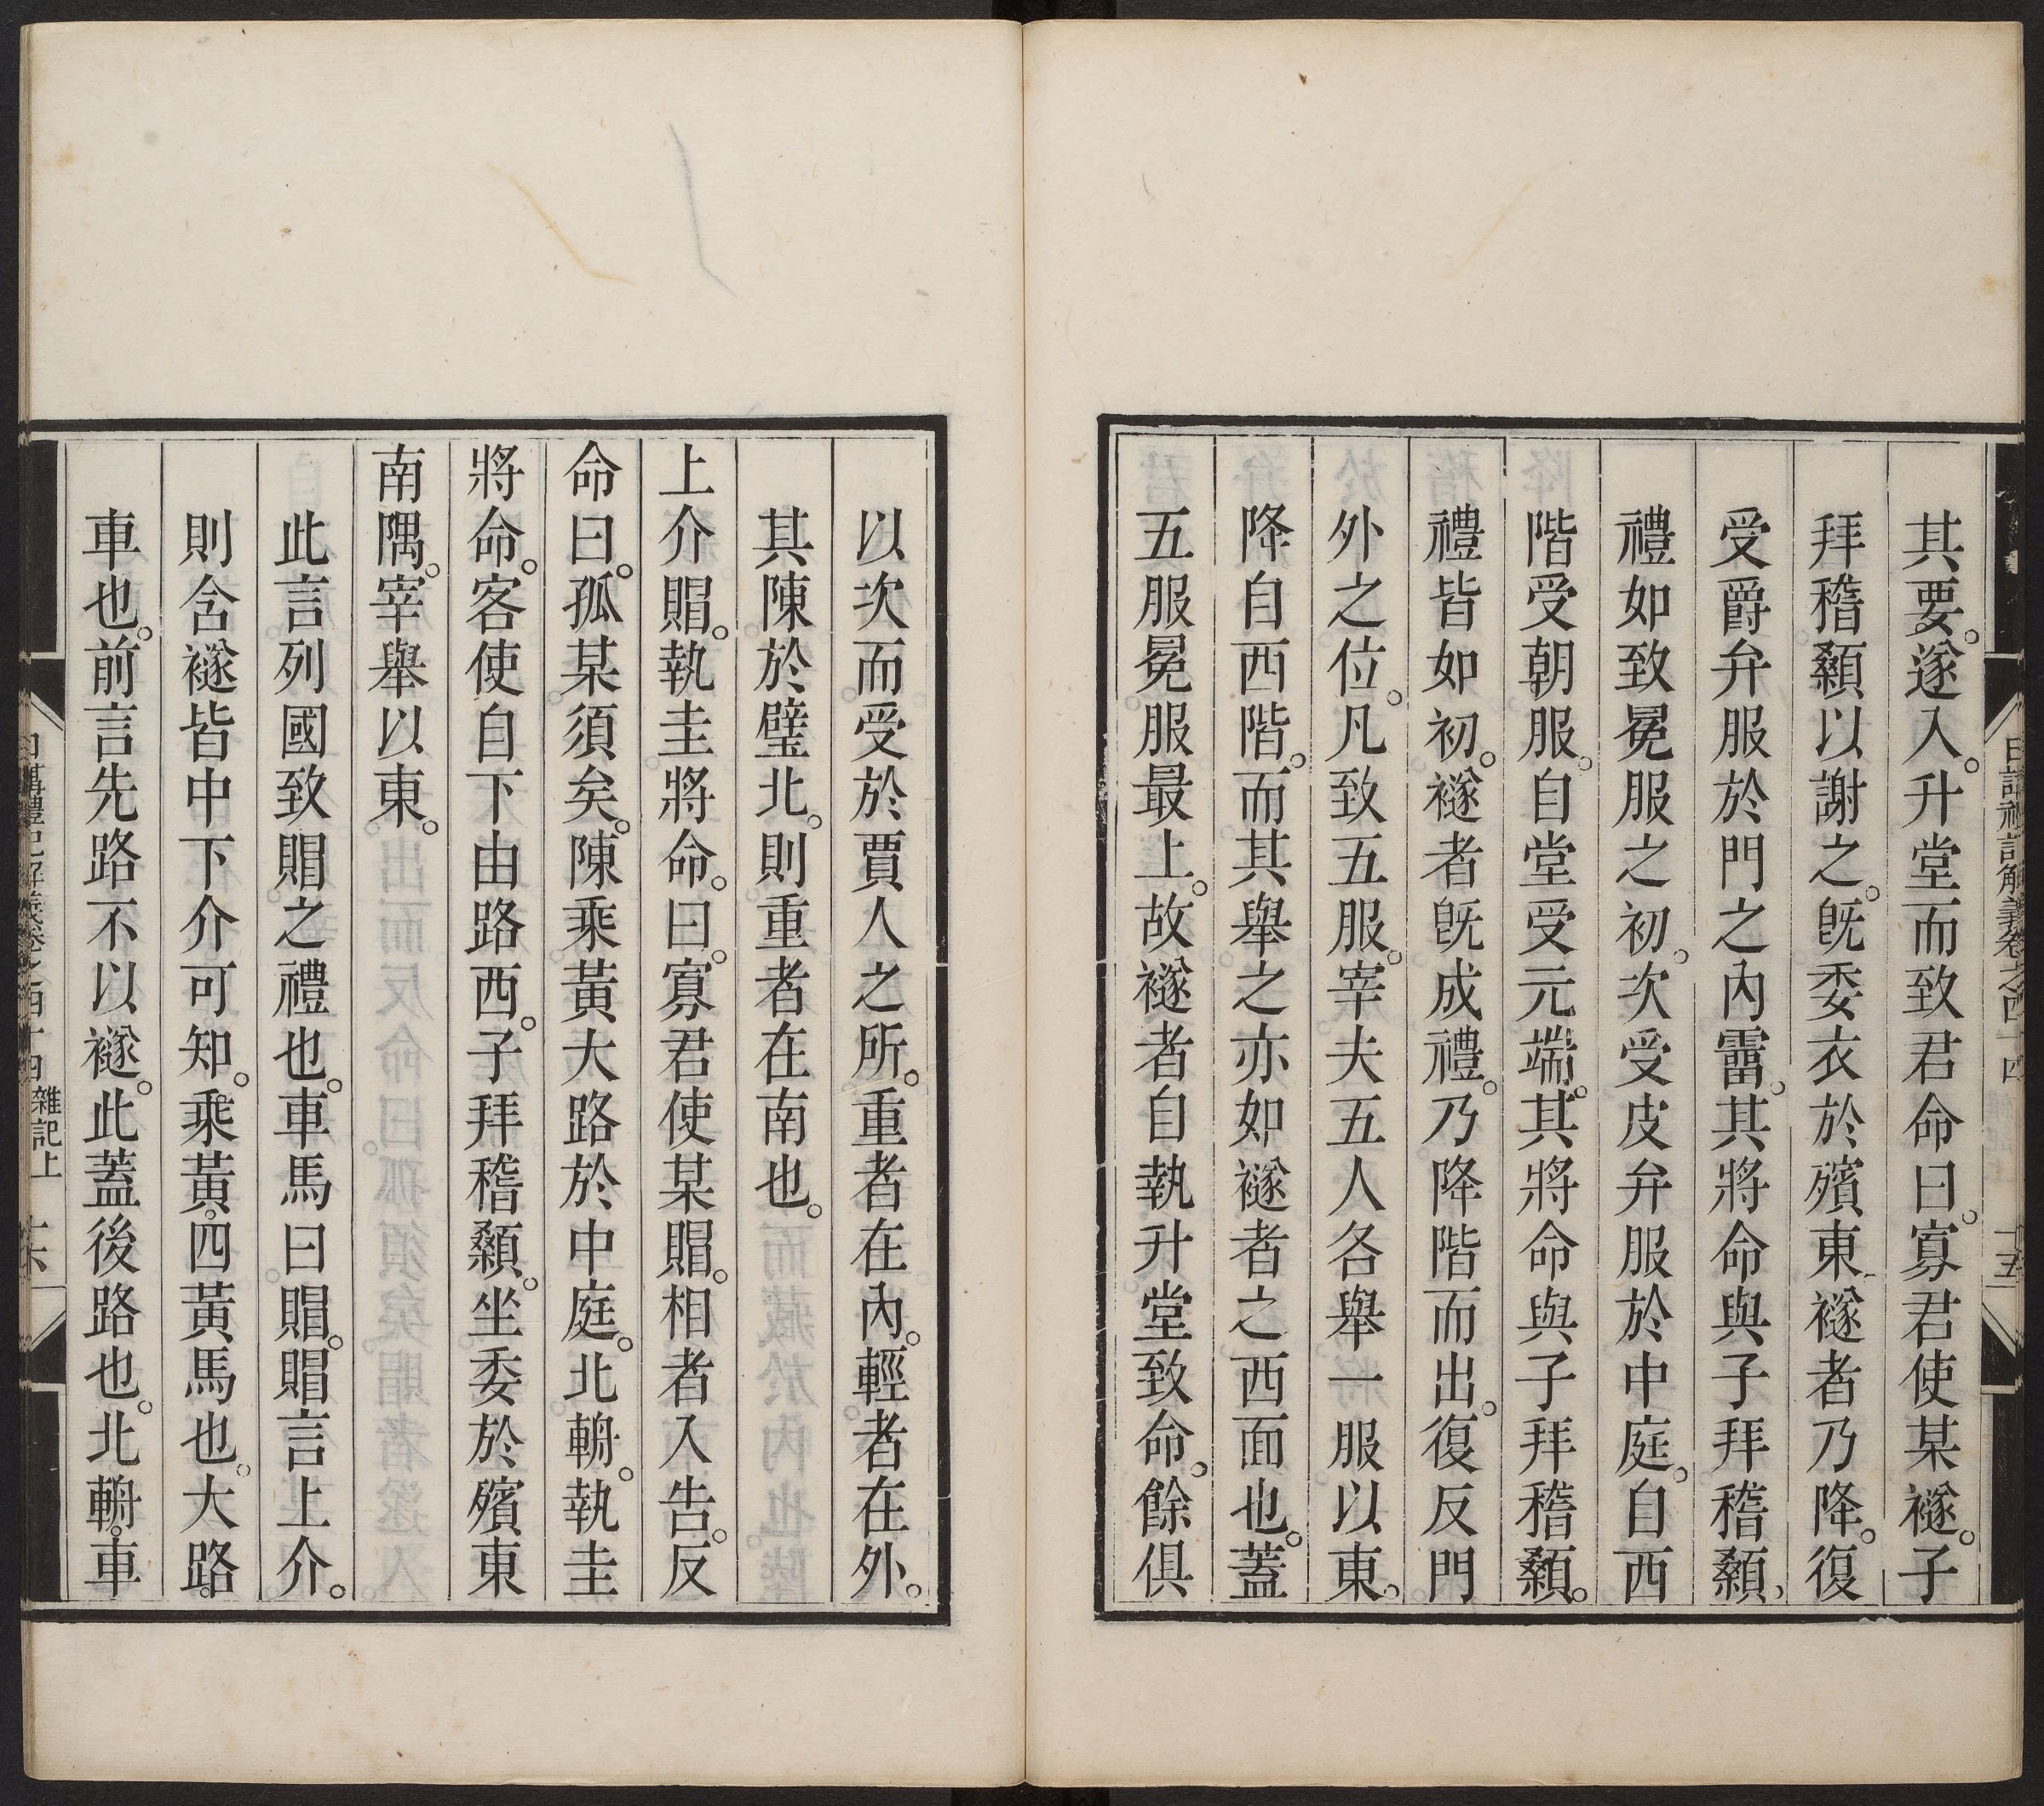 日講禮記解義卷之四十四
十五
其要。遂入。升堂而致君命曰。寡君使某襚。子
拜稽顙以謝之。旣委衣於殯東。襚者乃降。復
受爵弁服於門之內霤。其將命與子拜稽顙、
禮如致冕服之初。次受皮弁服於中庭。自西
階受朝服。自堂受元端。其將命與子拜稽顙。
禮皆如初。襚者旣成禮。乃降階而出。復反門
外之位。凡致五服。宰夫五人各舉一服以東。
降自西階。而其舉之亦如襚者之西面也。蓋
五服冕服最上。故襚者自執升堂致命。餘俱
以次而受於賈人之所。重者在內。輕者在外。
其陳於璧北。則重者在南也。
上介賵。執圭將命。曰。寡君使某賵。相者入告。反
命曰。孤某須矣。陳乘黃大路於中庭。北輈。執圭
將命。客使自下由路西。子拜稽顙。坐委於殯東
南隅。宰舉以東。
此言列國致賵之禮也。車馬曰賵。賵言上介。
則含襚皆中下介可知。乘黃。四黃馬也。大路。
車也。前言先路不以襚。此蓋後路也。北輈。車
日講禮記解義卷之四十四
雜記上
十六